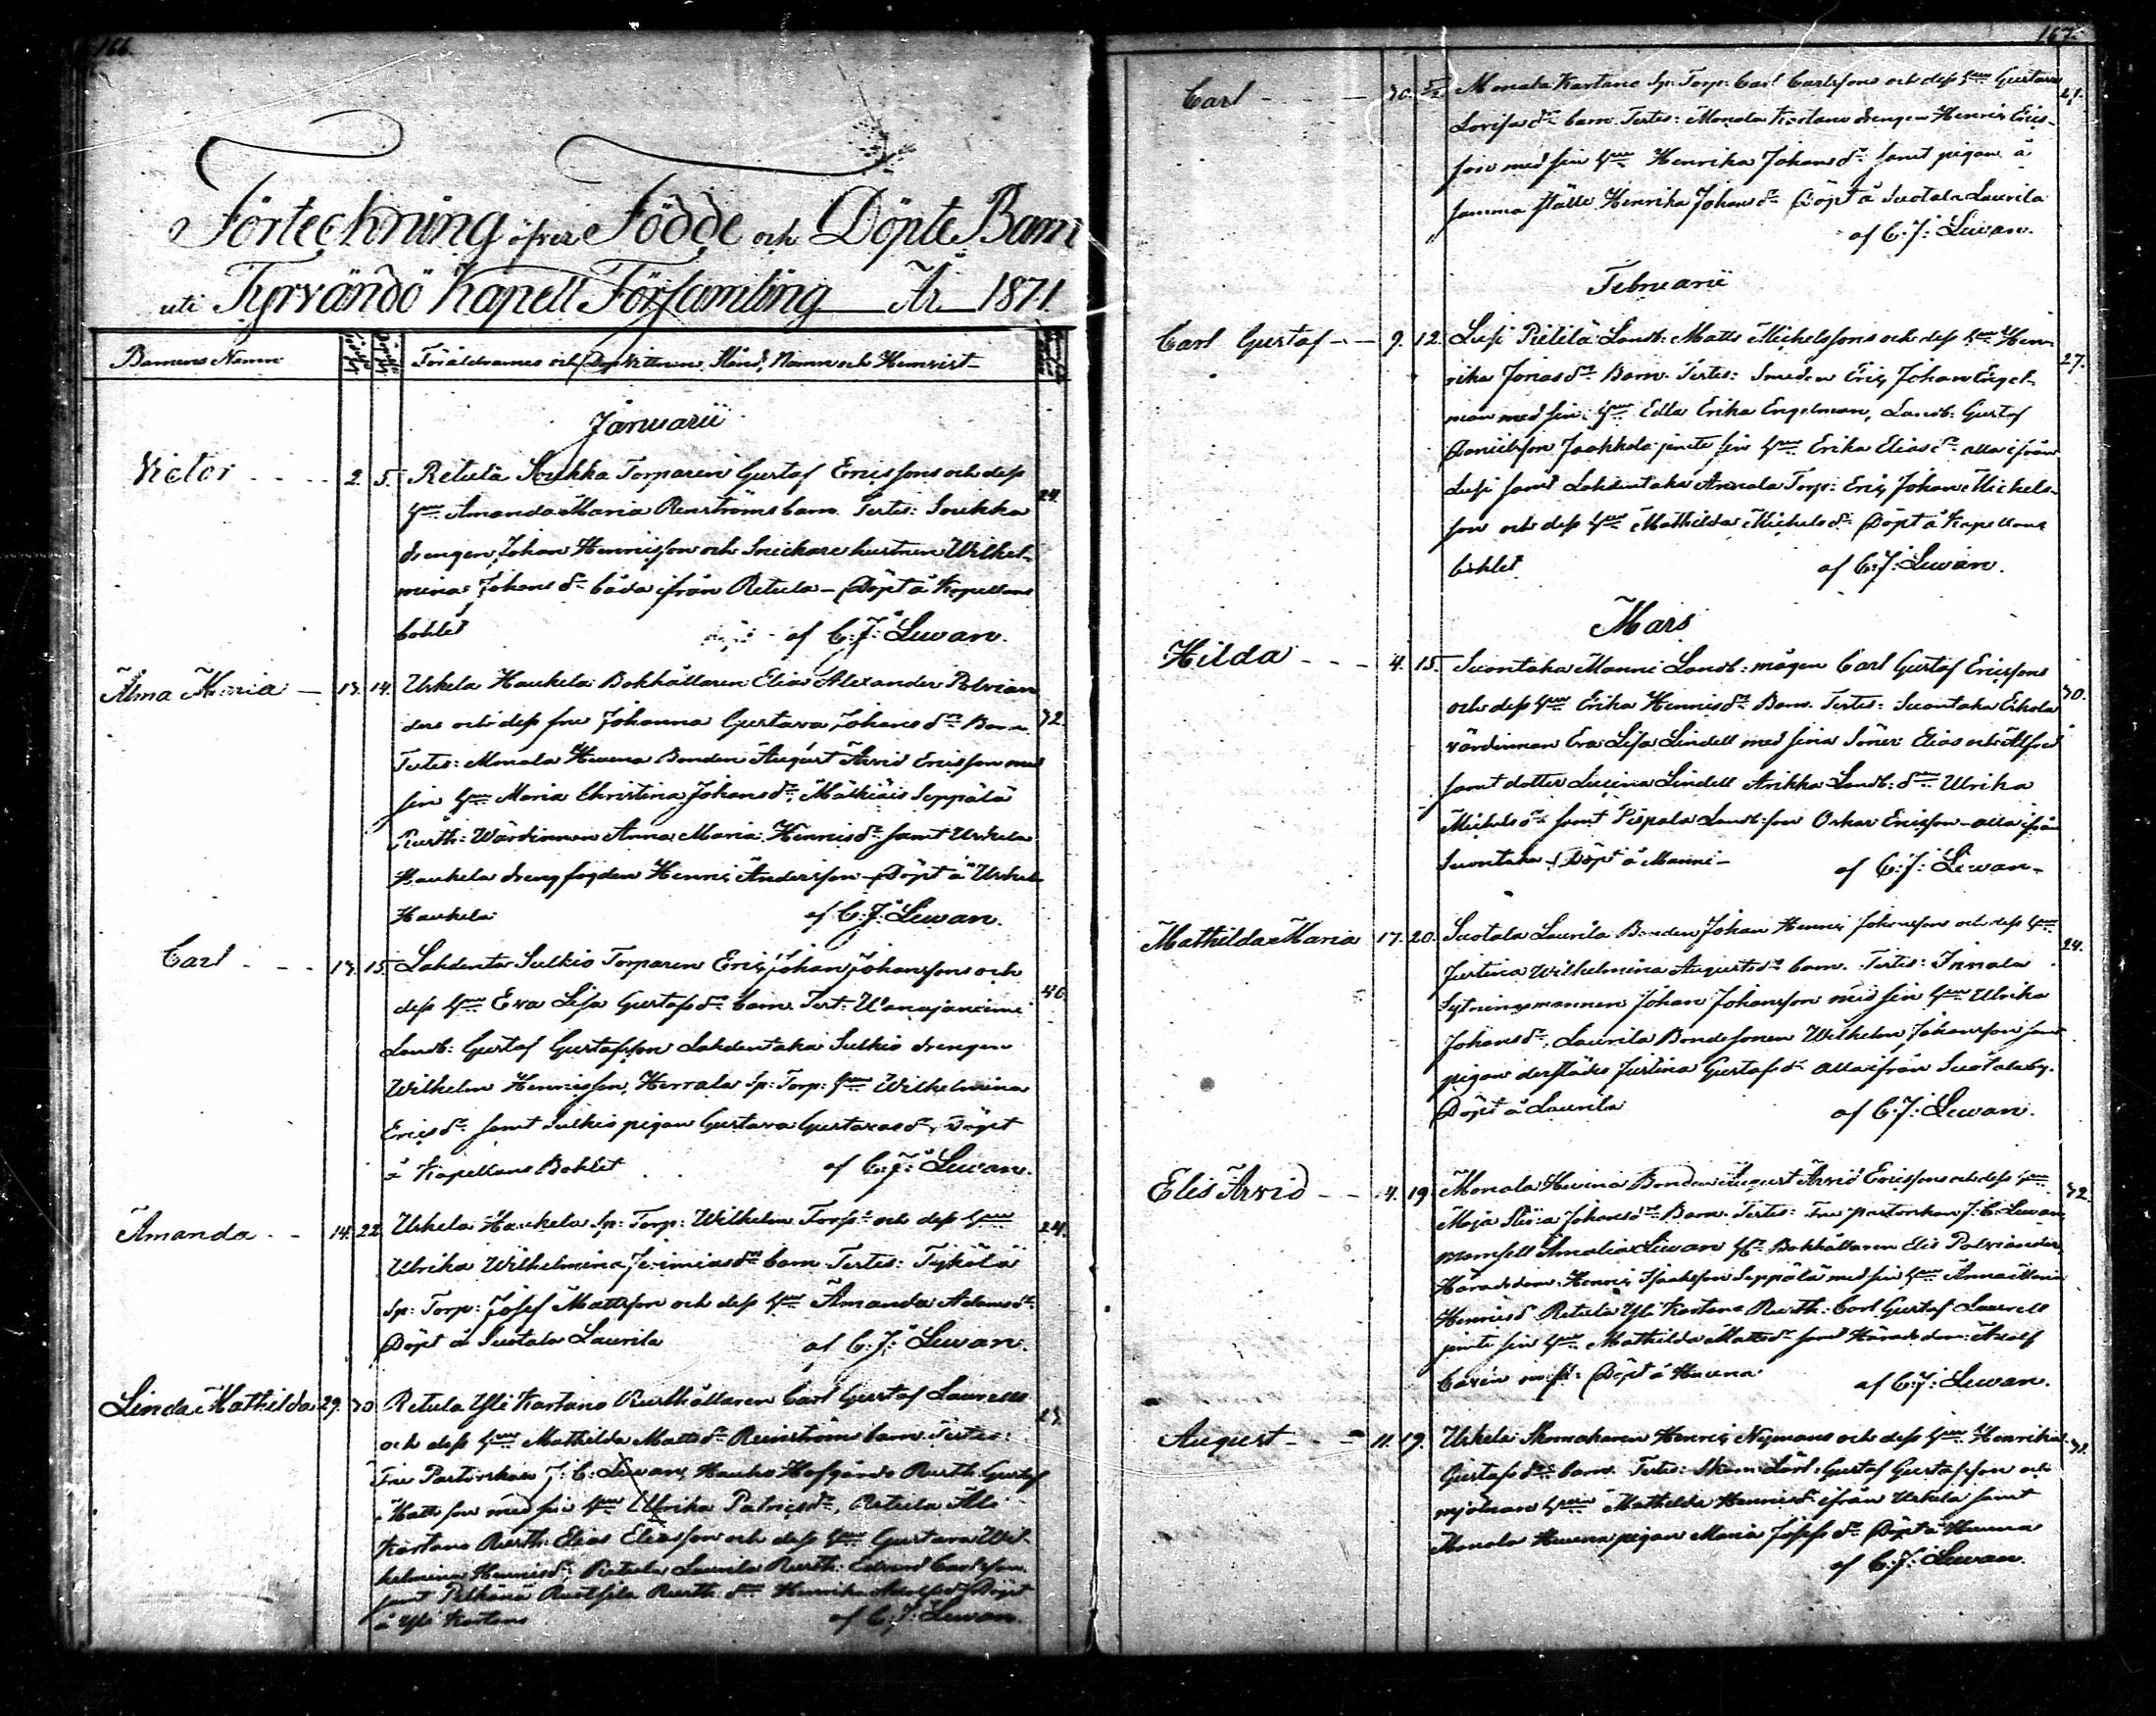 166.
Förteckning öfver Födde och Döpte Barn
uti Tyrvändö Kapell Församling År 1871
Barnens Namn Föräldrarnes och Dopvittnen, Stånd, Namn och Hemvist
Januarii
Victor 2. 5. Retula Soukka Torparen Gustaf Ericssons och dess 24.
hu Amanda Maria Renströms barn. Testes: Soukka
drengen Johan Henricsson och Snickare hustrun Wilhel-
mina Johans dr båda ifrån Retula - Döpt å Kapellans
bohlet af C: J: Lewan.
Alma Maria 13. 14. Uskela Haukela Bokhållaren Elias Alexander Polvian
ders och dess fru Johanna Gustava Johans dr Barn 32.
Testes: Monala Heuena Bonden August Arvid Ericsson med
sin hu Maria Christina Johans dr, Mälkiäis Seppälä
Rusth: Wärdinnan Anna Maria Henrics dr samt Uskela
Haukela drengfogden Henric Andersson - Döpt å Uskela
Haukela af C: J: Lewan.
Carl 13. 15. Lahdentaka Sulkio Torparen Eric Johan Johanssons och
dess hu Eva Lisa Gustafs dr barn. Test: Wanajaniemi 40.
Landb: Gustaf Gustafsson Lahdentaka Sulkio drengen
Wilhelm Henricsson, Herrala Sp: Torp: hu Wilhelmina
Erics dr samt Sulkio pigan Gustava Gustavas dr, Döpt
å Kapellans Bohlet af C: J: Lewan.
Amanda 14. 22. Uskela Haukela Sp: Torp: Wilhelm och dess hu 24.
Ulrika Wilhelmina Jeremias dr barn Testes: Tykölä
Sp: Torp: Josef Mattsson och dess hu Amanda Adams dr
Döpt å Suotala Laurila af C: J: Lewan.
Linda Mathilda 29. 30 Retula Yli Kartano Rusthållaren Carl Gustaf Laurells
och dess hu Mathilda Matts dr Renström barn Testes:
Fru Pastorskan J: C: Lewan, Hauho Hofgårds Rusth: Gustaf
Mattsson med sin hu Ulrika Patrics dr, Retula Ali
Kartano Rusth: Elias Eliasson och dess hu Gustava Wil-
helmina Henrics dr, Retula Laurila Rusth: Edvard Carlsson
samt Pelkäne Ruotsila Rusth: dr Henrika Adolfs dr Döpt
å Yli Kartano af C: J: Lewan.
167.
Carl 30. 5/2. Monala Kartano Sp: Torp: Carl Carlssons och dess hu Gustava 27.
Lovisas dr barn. Testes: Monala Kartano drengen Henric Erics-
son med sin hu Henrika Johans dr samt pigan å
samma ställe Henrika Johans dr Döpt å Suotala Laurila
af C: J: Lewan.
Februarii
Carl Gustaf 9. 12. Luhi Pietilä Landb: Matts Michelssons och dess hu Hen-
rika Jonas dr Barn. Testes: Smeden Eric Johan Engel- 27.
man med sin hu Edla Erika Engelman, Landb: Gustaf
Danielsson Jaakkola jemte sin hu Erika Elias dr alla ifrån
Luhi samt Lahdentaka Annala Torp: Eric Johan Michels-
son och dess hu Mathilda Michels dr Döpt å Kapellans
bohlet af C: J: Lewan.
Mars
Hilda 4. 15. Suontaka Manni Landb: mågen Carl Gustaf Ericssons
och dess hu Erika Henrics dr Barn. Testes: Suontaka Eskola 30.
värdinnan Eva Lisa Lindell med sina Söner Elias och Alfred
samt dotter Lucina Lindell Arikka Landb: dr Ulrika
Michels dr samt Pispala Landb: son Oskar Ericsson - alla ifrån
Suontaka - Döpt å Manni - af C: J: Lewan -
Mathilda Maria 17. 20. Suotala Laurila Bonden Johan Henric Johansson och dess hu 24.
Justina Wilhelmina Augusts dr barn. Testes: Innala
Sytningsmannen Johan Johansson med sin hu Ulrika
Johans dr, Laurila Bondesonen Wilhelm Johansson samt
pigan derstädes Justina Gustafs dr alla ifrån Suotala by.
Döpt å Laurila af C: J: Lewan.
Elis Arvid 4. 19. Monala Heuena Bonden August Arvid Ericssons och dess hu 32.
Maja Stina Johans dr Barn. Testes: Fru pastorskan J: C: Lewan,
mamsell Amalia Lewan Hr Bokhållaren Elis Polviander,
Häradsdom: Henric Isacsson Seppälä med sin hu Anna Maria
Henrics dr Retula Yli Kartano Rusth: Carl Gustaf Laurell
jemte sin hu Mathilda Matts dr samt Häradsdom: Adolf
Döpt å Heuena af C: J: Lewan.
August 11. 19. Uskela Skomakaren Henric Nymans och dess hu Henrika
Gustafs dr barn. Testes: Skom: Lärl: Gustaf Gustafsson och
mjölnare hu Mathilda Henrics dr ifrån Uskela samt
Monala Heuena pigan Maria Josefs dr Döpt å Heuena
af C: J: Lewan.